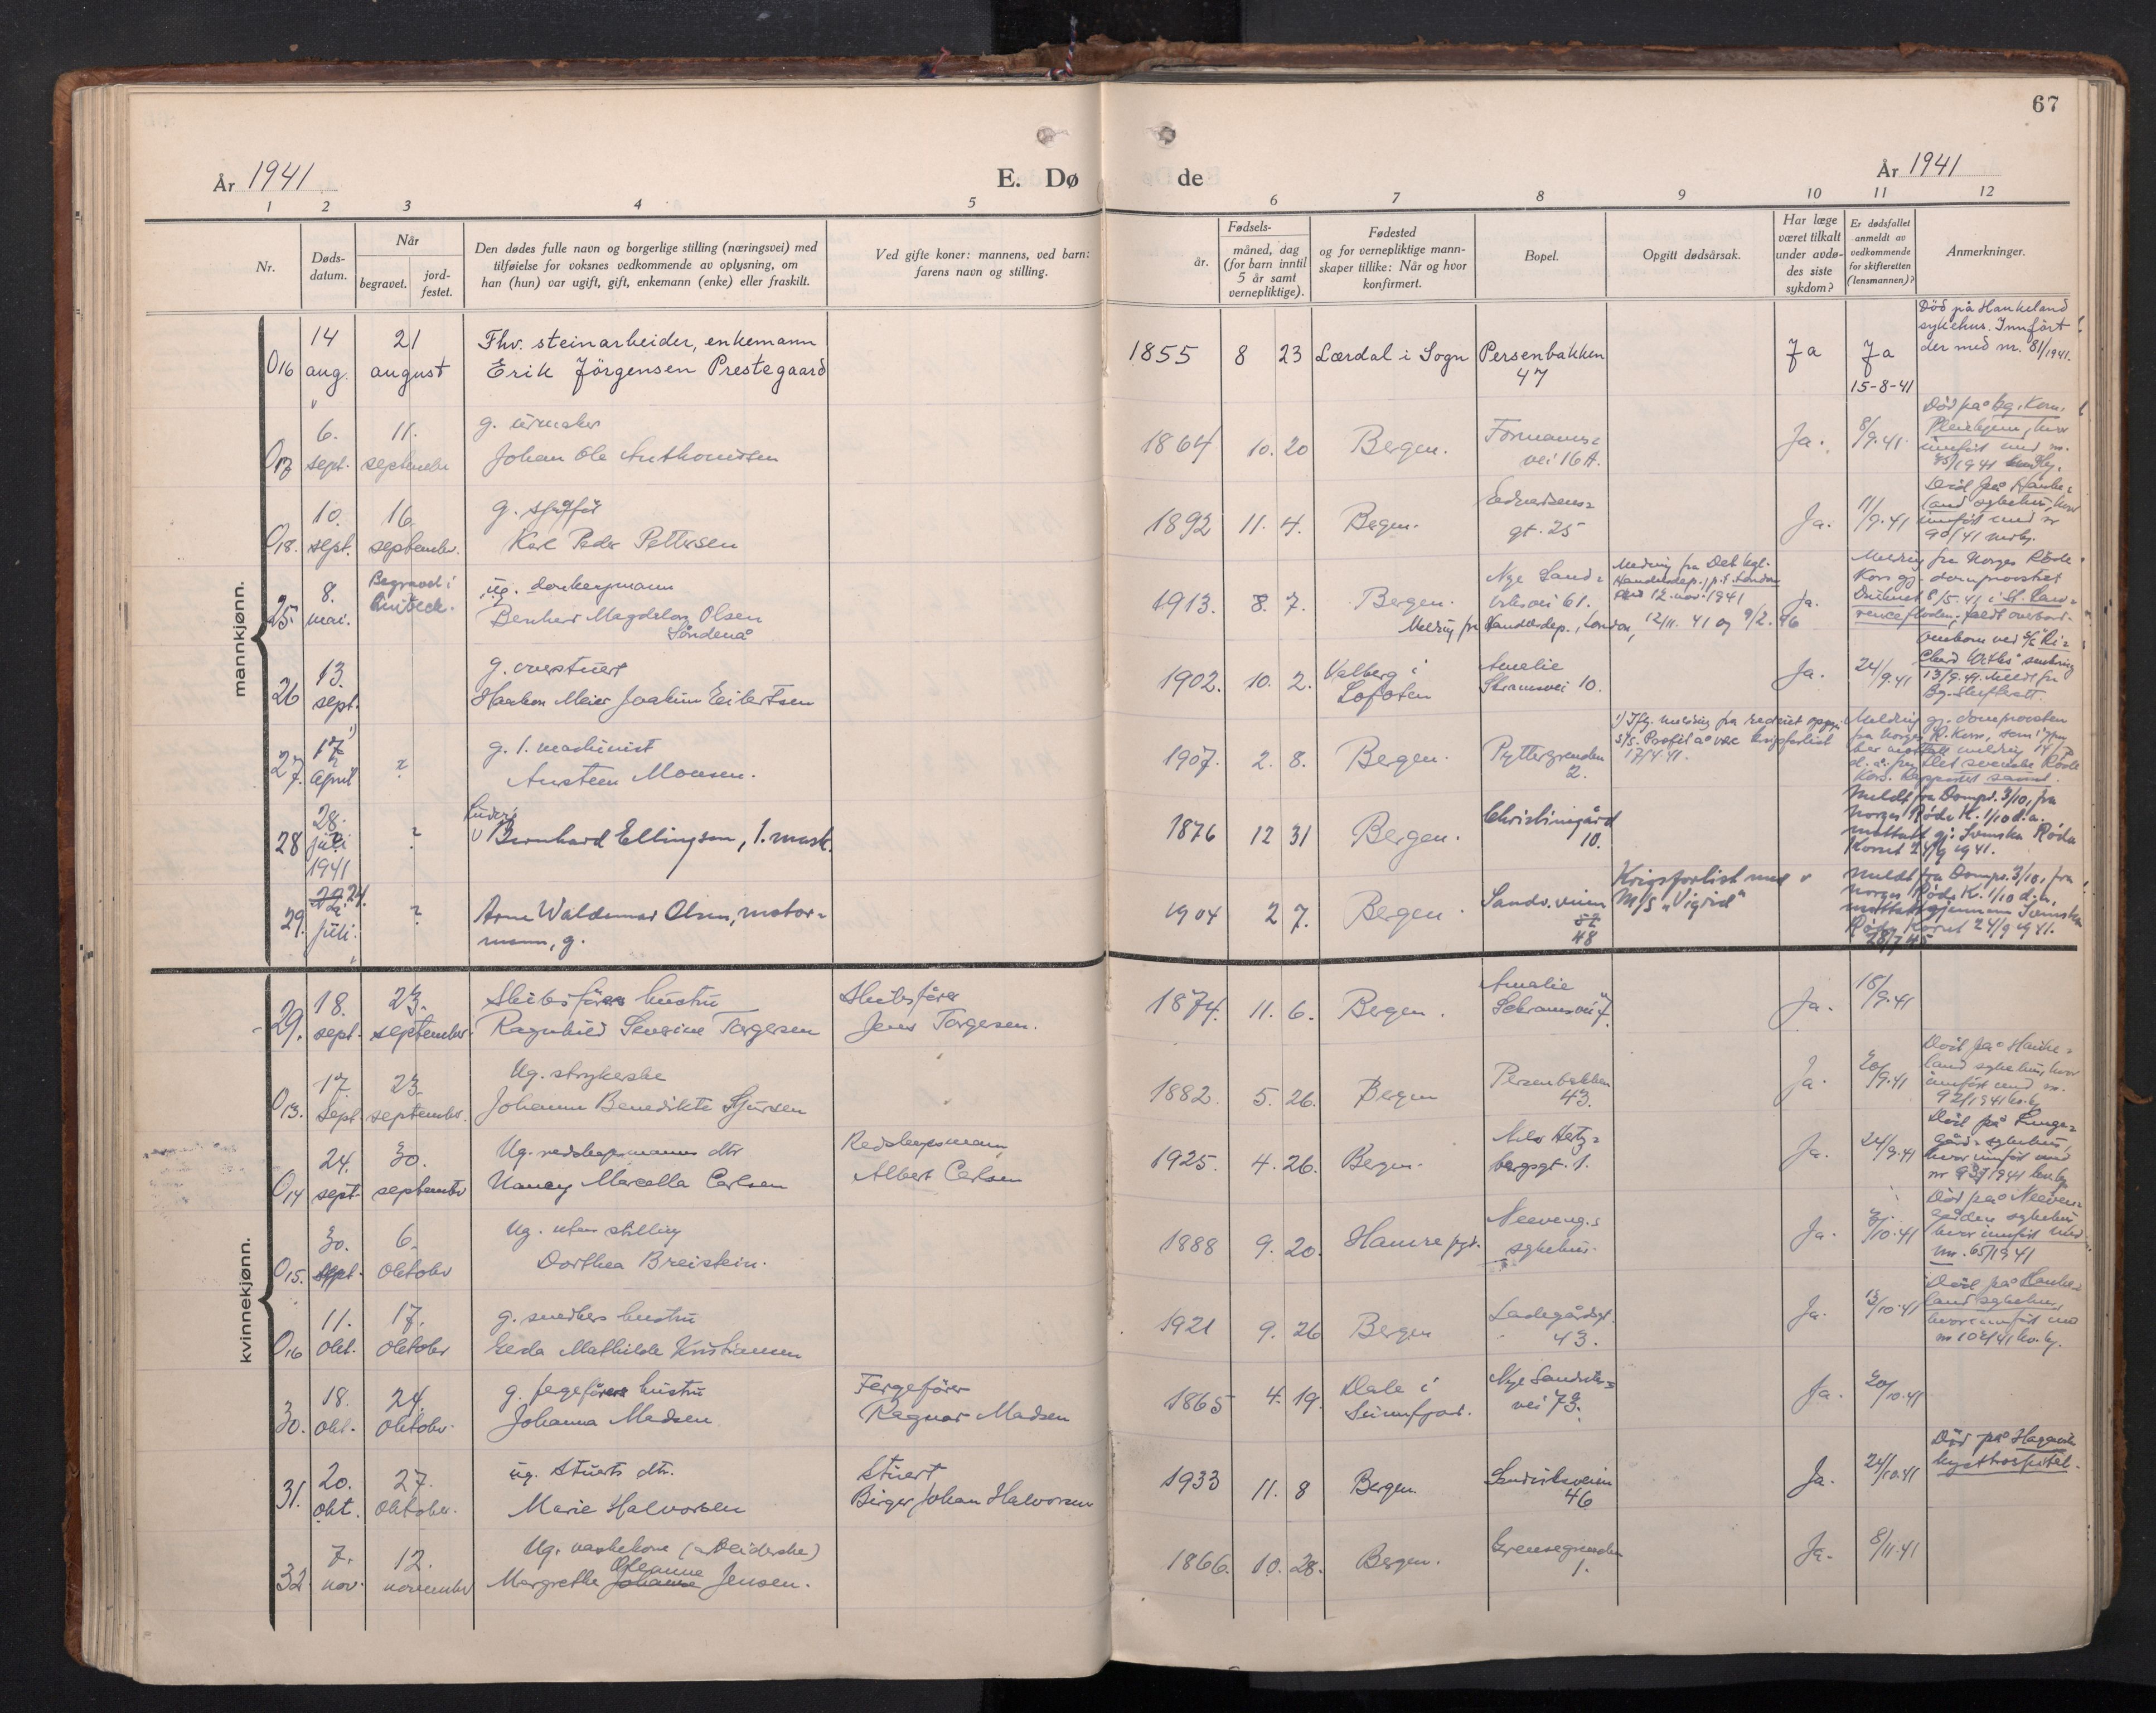 67
År 1941
E. Dø
de
År 1941
1 2 3 4 5 6 7 8 9 10 11 12
Nr.
Døds-
datum.
Når
begravet.
jord-
festet.
Den dødes fulle navn og borgerlige stilling (næringsvei) med
tilføielse for voksnes vedkommende av oplysning, om
han (hun) var ugift, gift, enkemann (enke) eller fraskilt.
Ved gifte koner: mannens, ved barn:
farens navn og stilling.
Fødsels-
år.
måned, dag
(for barn inntil
5 år samt
vernepliktige).
Fødested
og for vernepliktige mann-
skaper tillike: Når og hvor
konfirmert.
Bopel.
Opgitt dødsårsak.
Har læge
været tilkalt
under avdø-
des siste
sykdom?
Er dødsfallet
anmeldt av
vedkommende
for skifteretten
(lensmannen)?
Anmerkninger.
mannkjønn.
14 21 Fhv. steinarbeider, enkemann
O16 aug. august Erik Jörgensen Prestegaard
1855 8 23 Lærdal i Sogn Persenbakken
47
Ja Ja
15-8-41
Död på Haukeland
sykehus. Innfört
der med nr. 81/1941.
6. 11. g. urmaker
O17 sept. september Johan Ole Anthonissen
1864 10. 20 Bergen. Formanns=
vei 16 A.
Ja. 8/9.41.
Död på Bg. Kom.
Pleiehjem, hvor
innført med nr.
10. 16.
O18. sept. september. Karl Peder Pettersen
1892 11. 4. Bergen.
gt. 25
Ja. 11/9.41
Död på Hauke=
land sykehus, hvor
innfört med nr
90/41
8. Begravet i
25. mai. Quebeck.
ug. donkeymann
Benhard Magdelon Olsen
Söndenå
1913. 8. 7. Bergen. Nye Sand=
viksvei 61.
Melding fra Det kgl.
Handelsdep., p.t. London
12. nov. 1941
Melding fra Handelsdep., London, 12/11. 41 og 9/2. 46
Ja.
Melding fra Norges Röde
Kors gj. domprovstiet
Druknet 8/5. 41 i St. Law=
rencefloden; faldt overbord.
13.
26 sept. g.
Haakon Meier Joakim Eilertsen
1902. 10. 2. Valberg i
Lofoten
Amalie
Skramsvei 10.
Ja. 24/9.41
Omkom ved s/s "Ri=
chard Withs" senkning
13/9.
17 1)
27. april ? g. 1. maskinist
Austeen Monsen.
1907. 2. 8. Bergen. Pyttergrenden
2.
1) Iflg. melding fra rederiet
s/s. Profit å være krigsforlist
17/4.41.
Melding gj. domprovsten
fra Norges R. Kors, som igjen
har mottatt melding 14/
d. å. fra Det svenske Röde
Kors. samt.
28.
28 juli ?
1941
Bernhard Ellingsen, 1. mask.
1876 12 31 Bergen. Christinegård
10.
Meldt fra Dompr. 3/10, fra
Norges Røde K. 1/10 d.a.
mottatt gj. Svenska Röda
Korset 24/9 1941.
24.
29. juli. ? Arne Waldemar Olsen, motor=
mann, g.
1904 2 7. Bergen. Sandv. veien
52
48
Krigsforlist med
M/S "Vigrid"
Meldt fra Dompr. 3/10, fra
Norges Røde K. 1/10 d.a,
mottatt gjennem Svenska
Röda Korset 24/9 1941.
28/7 45
kvinnekjønn.
18. 23. Skibsförers hustru Skibsförer
29. sept. september. Ragnhild Severine Torgersen Jens Torgersen.
1874. 11. 6. Bergen. Amalie
Schramsvei 7.
Ja. 18/9.41
17. 23. Ug. strykerske
O13. sept. september. Johanne Benedikte Sjursen
1882. 5. 26. Bergen Persenbakken
43.
Ja. 20/9.41
Död på Hauke=
land sykehus, hvor
innfört med nr.
92/1941
24. 30. Ug. redskapsmanns dtr Redskapsmann
O14 sept. september Nancy Marcella Carlsen Albert Carlsen
1925. 4. 26. Bergen. Nils Hertz=
bergsgt. 1.
Ja. 24/9.41
Död på Lunge=
gårds sykehus,
hvor innfört med
30. 6. Ug. uten stilling
O15. sept. oktober Dorthea Breistein.
1888 9. 20. Hamre pgd. Neeveng.s
sykehus.
Ja. 3/10.41
Död på Neeven=
gården sykehus
hvor innfört med
nr. 65/1941
11. 17. g. snedkers hustru
O16 okt. oktober Gerda Mathilde Kristiansen
1921 9. 26 Bergen Ladegårdsgt.
43.
Ja. 13/10.41
Död på Hauke=
land sykehus,
hvor innfört med
nr 102/41 kv.kj.
18. 24. g. fergeförers hustru Fergefører
30. okt. oktober. Johanna Madsen Ragnar Madsen
1865 4. 19. Dale i
Sunnfjord. Nye Sandviks=
vei 73.
Ja. 20/10.41
20. 27. ug. Stuerts dtr. Stuert
31. okt. oktober. Marie Halvorsen Birger Johan Halvorsen
1933 11. 8 Bergen. Sandviksveien
46
Ja. 24/10.41
Död på Hagevik
kysthospital.
7. 12. Ug. vaskekone (arbeiderske)
Oleanne
32. nov. november Margrethe Johanne Jensen.
1866. 10. 28. Bergen. Grensegrenden
1.
Ja. 8/11.41